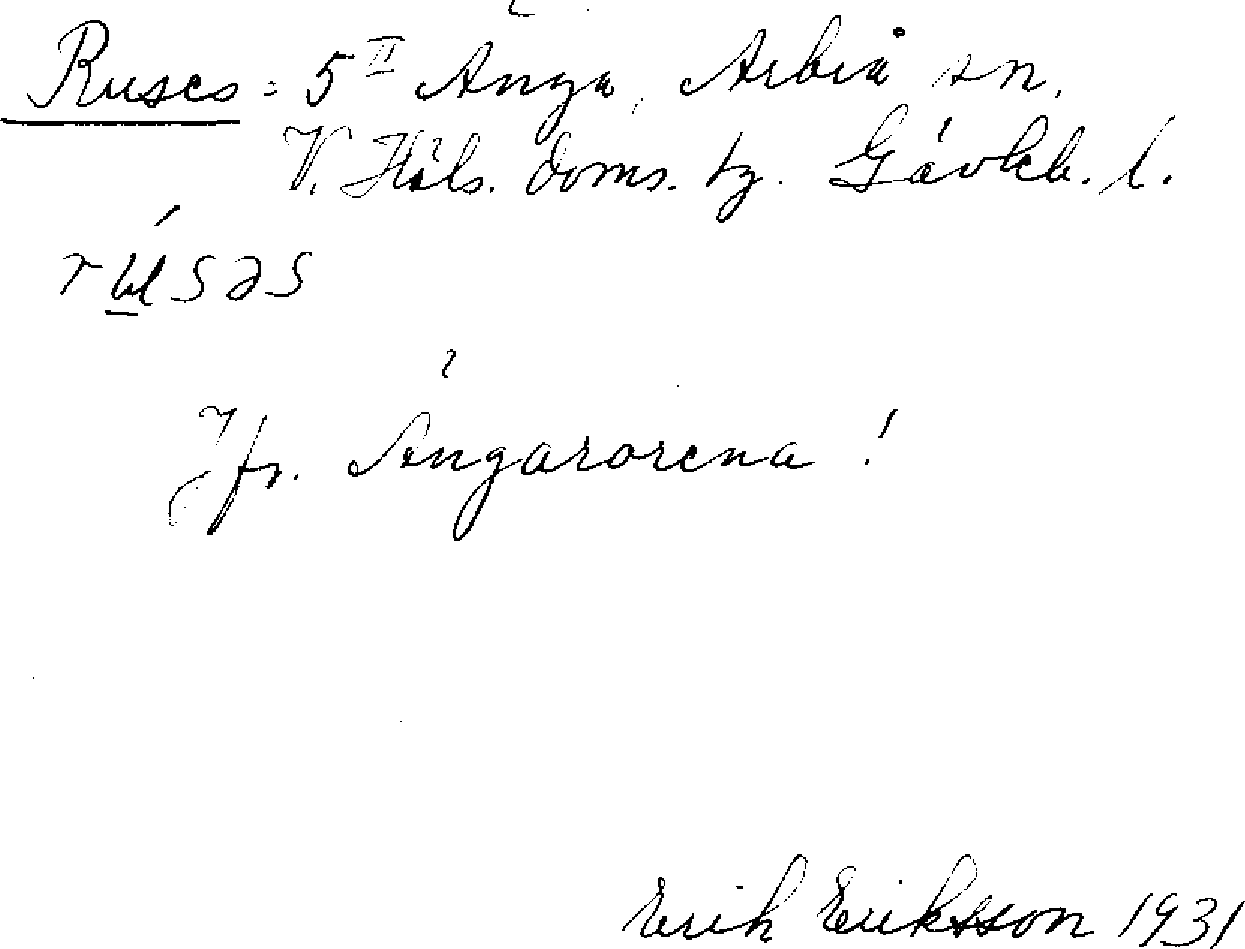 Ruses = 5 II Änga, Arbrå sn.
V. Häls. doms. tg. Gävleb. l.
Jfr. Ängarorena !
Erik Eriksson 1931